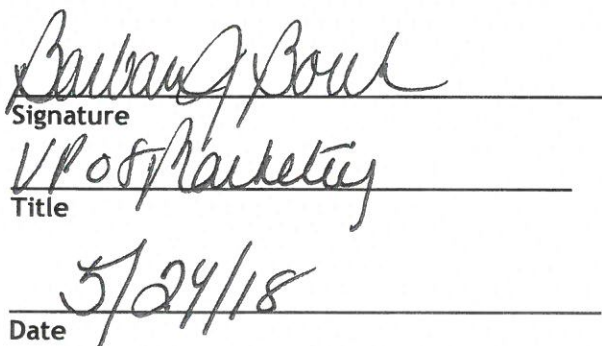 Barbara J
Signature
VP of Marketing
Title
5/24/18
Date